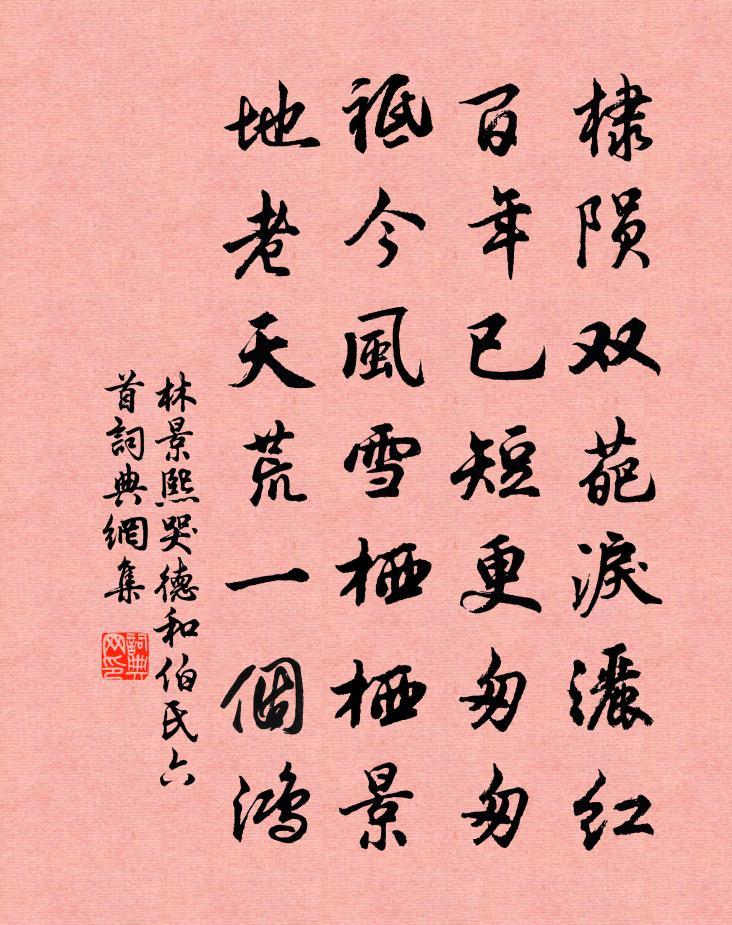 棣陨双葩淚灑红
百年已短更匆匆
祗今風雪栖栖景
地老天荒一個鸿
林景熙哭德和伯氏六
首詞典網集
詞典網印